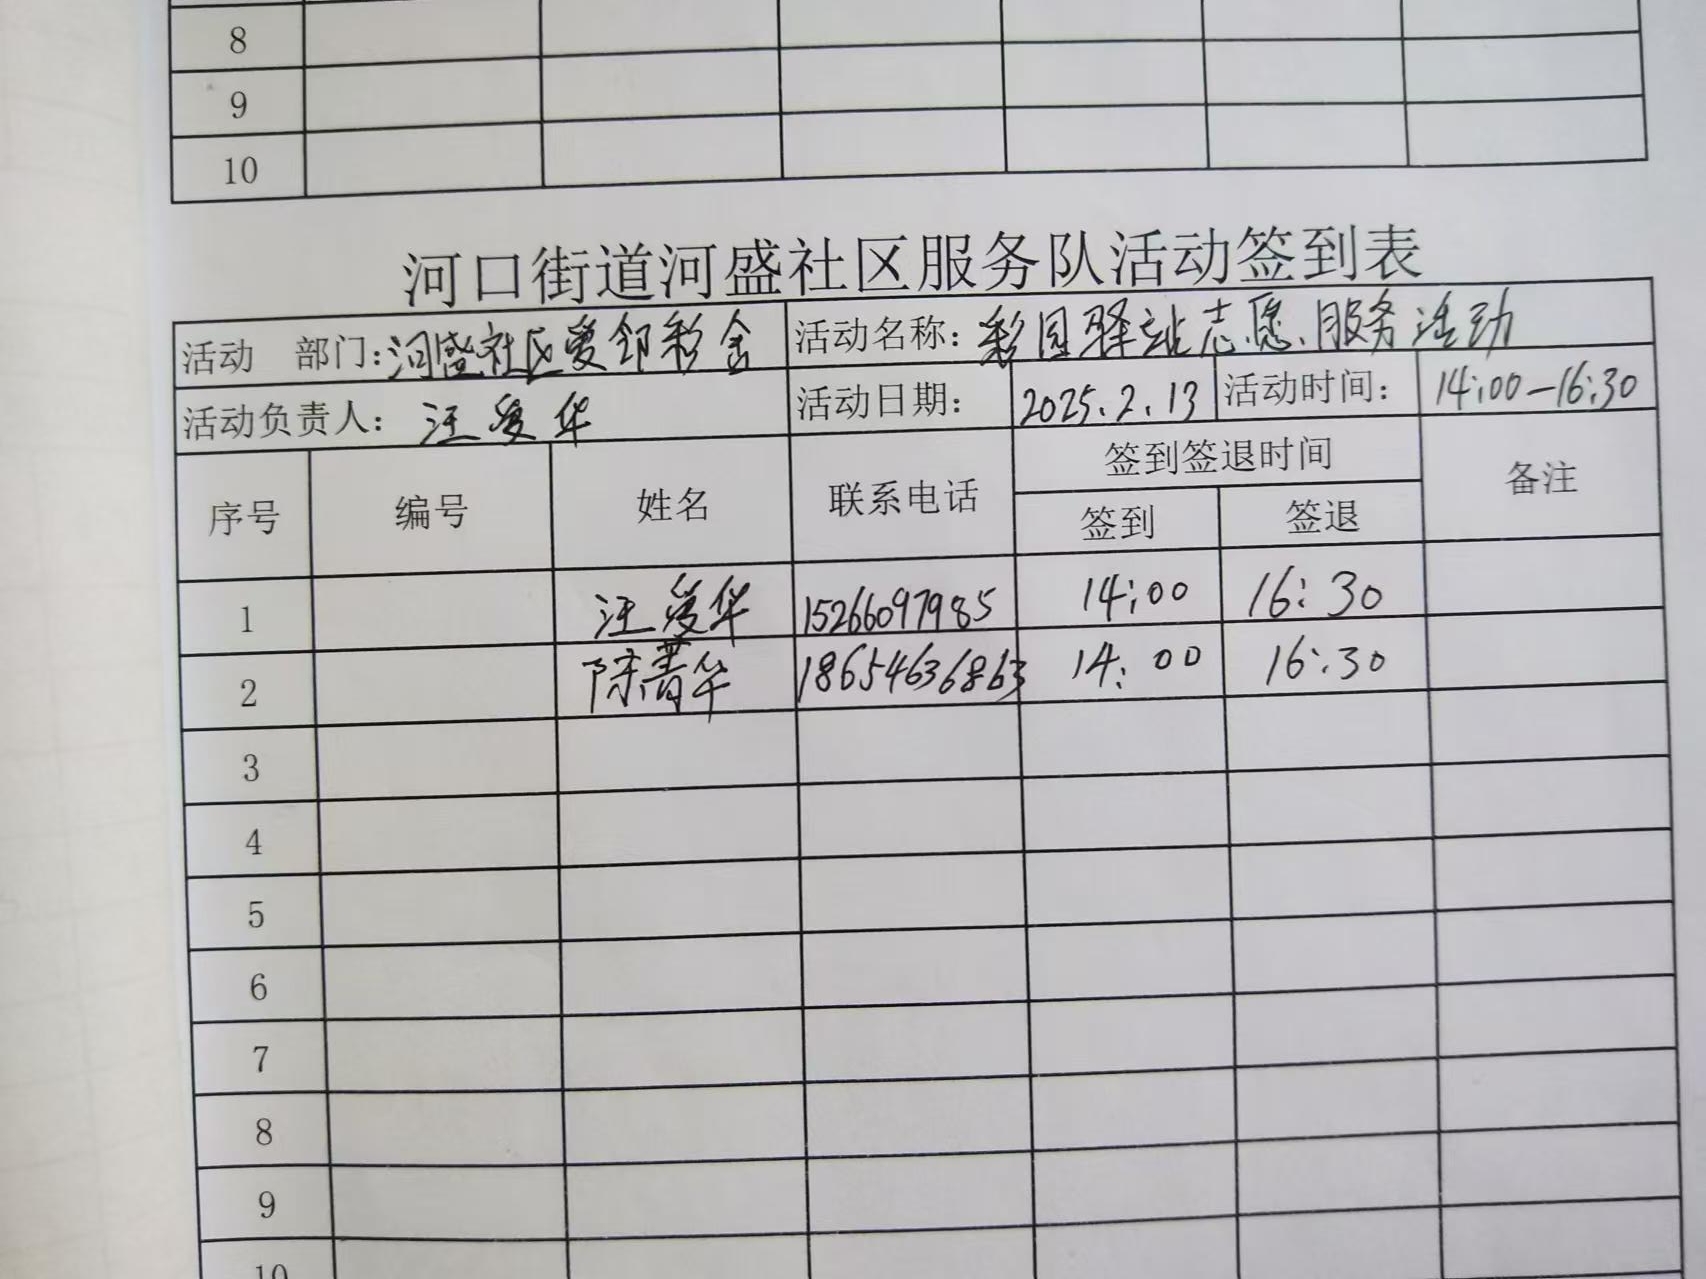 8
9
10
河口街道河盛社区服务队活动签到表
活动 部门：河盛社区爱邻彩舍 活动名称：彩园驿站志愿服务活动
活动负责人：汪爱华 活动日期： 2025.2.13 活动时间： 14:00-16:30
序号 编号 姓名 联系电话 签到签退时间 备注
签到 签退
1 汪爱华 15266097985 14:00 16:30
2 陈菁华 18654636863 14:00 16:30
3
4
5
6
7
8
9
10